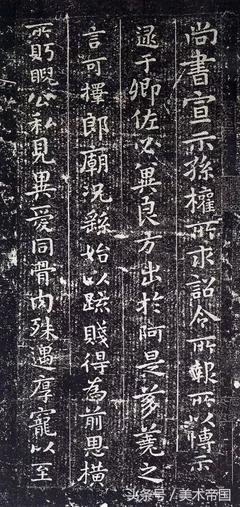 尚書宣示孫權所求詔令所報所以博示
逮于卿佐必冀良方出於阿是芻蕘之
言可擇郎廟況繇始以疏賤得為前恩橫
所盱睨公私見異愛同骨肉殊遇厚寵以至
头条号/美术帝国